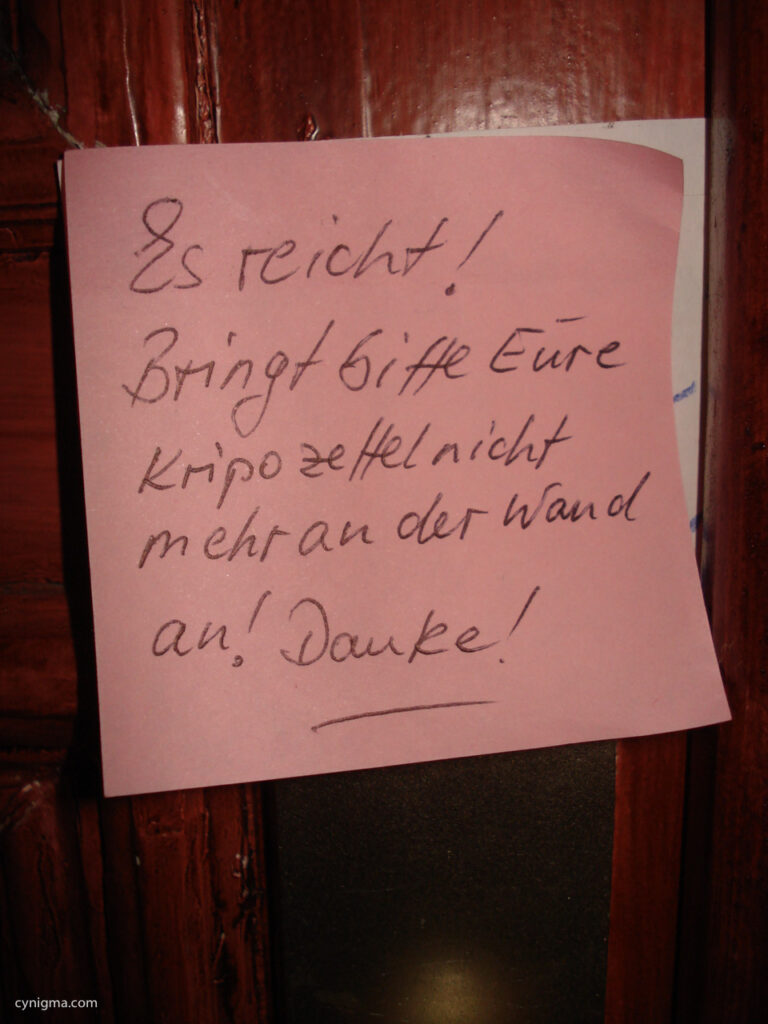 Es reicht!
Bringt bitte Eure
Kripozettel nicht
mehr an der Wand
an! Danke!
cynigma.com